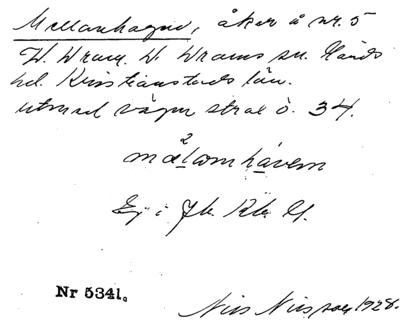 Mellanhagen, åker å nr. 5
V. Vram, V. Vrams sn. Gärds
hd. Kristianstads län.
utmed vägen strax ö. 34.
2
mälomhávem
Ej i Jb. Rbr. U.
Nr 5341.
Nils Nilsson 1928.